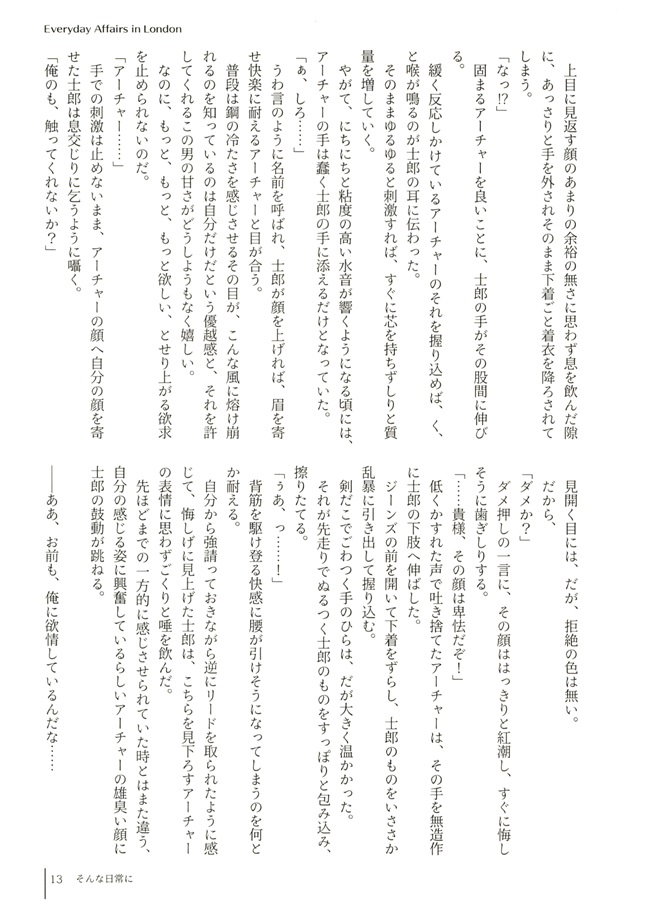 Everyday Affairs in London
上目に見返す顔のあまりの余裕の無さに思わず息を飲んだ隙
に、あっさりと手を外されそのまま下着ごと着衣を降ろされて
しまう。
「なっ!?」
固まるアーチャーを良いことに、士郎の手がその股間に伸び
る。
緩く反応しかけているアーチャーのそれを握り込めば、く、
と喉が鳴るのが士郎の耳に伝わった。
そのままゆるゆると刺激すれば、すぐに芯を持ちずしりと質
量を増していく。
やがて、にちにちと粘度の高い水音が響くようになる頃には、
アーチャーの手は蠢く士郎の手に添えるだけとなっていた。
「ぁ、しろ……」
うわ言のように名前を呼ばれ、士郎が顔を上げれば、眉を寄
せ快楽に耐えるアーチャーと目が合う。
普段は鋼の冷たさを感じさせるその目が、こんな風に熔け崩
れるのを知っているのは自分だけだという優越感と、それを許
してくれるこの男の甘さがどうしようもなく嬉しい。
なのに、もっと、もっと、もっと欲しい、とせり上がる欲求
を止められないのだ。
「アーチャー……」
手での刺激は止めないまま、アーチャーの顔へ自分の顔を寄
せた士郎は息交じりに乞うように囁く。
「俺のも、触ってくれないか?」
見開く目には、だが、拒絶の色は無い。
だから、
「ダメか?」
ダメ押しの一言に、その顔ははっきりと紅潮し、すぐに悔し
そうに歯ぎしりする。
「……貴様、その顔は卑怯だぞ!」
低くかすれた声で吐き捨てたアーチャーは、その手を無造作
に士郎の下肢へ伸ばした。
ジーンズの前を開いて下着をずらし、士郎のものをいささか
乱暴に引き出して握り込む。
剣だこでごわつく手のひらは、だが大きく温かかった。
それが先走りでぬるつく士郎のものをすっぽりと包み込み、
擦りたてる。
「ぅあ、っ……!」
背筋を駆け登る快感に腰が引けそうになってしまうのを何と
か耐える。
自分から強請っておきながら逆にリードを取られたように感
じて、悔しげに見上げた士郎は、こちらを見下ろすアーチャー
の表情に思わずごくりと唾を飲んだ。
先ほどまでの一方的に感じさせられていた時とはまた違う、
自分の感じる姿に興奮しているらしいアーチャーの雄臭い顔に
士郎の鼓動が跳ねる。
――ああ、お前も、俺に欲情しているんだな……
13 そんな日常に